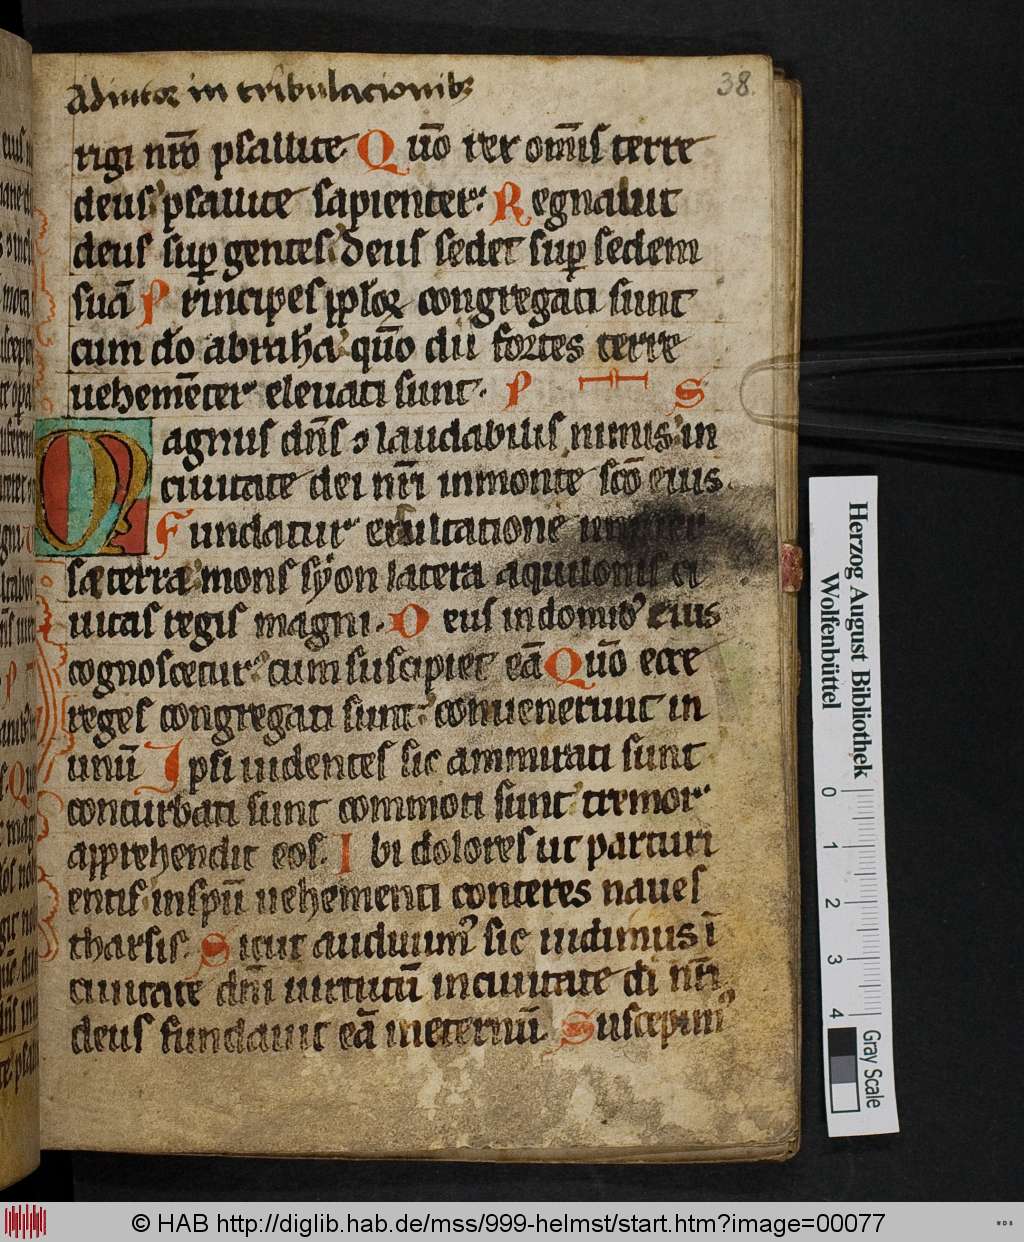 Adiutor in tribulacionibꝫ
38.
rigi nr̄o psallite Quō rex om̄is terre
deus psallite sapienter. Regnabit
deus suꝑ gentes deus sedet suꝑ sedem
suā Principes ppl̄oꝝ congregati sunt
cum dō abraham quō dii fortes terre
uehemēter eleuati sunt. PS
Magnus dn̄s ⁊ laudabilis nimis in
ciuitate dei nr̄i in monte sc̄o eius
Fundatur exultatione uniuer
se terra mons syon latera aquilonis ci
uitas regis magni. Deus in domibꝰ eius
cognoscetur cum suscipiet eā Quō ecce
reges congregati sunt conuenerunt in
unū Ipsi uidentes sic ammirati sunt
conturbati sunt commoti sunt tremor
apprehendit eos. Ibi dolores ut parturi
entis in spū uehementi conteres naues
tharsis. Sicut audiuimꝰ sic uidimus ī
ciuitate dn̄i uirtutū in ciuitate di nr̄i
deus fundauit eā in eternū. Suscepimꝰ
Herzog August Bibliothek
Wolfenbüttel
0 1 2 3 4
Gray Scale
© HAB http://diglib.hab.de/mss/999-helmst/start.htm?image=00077